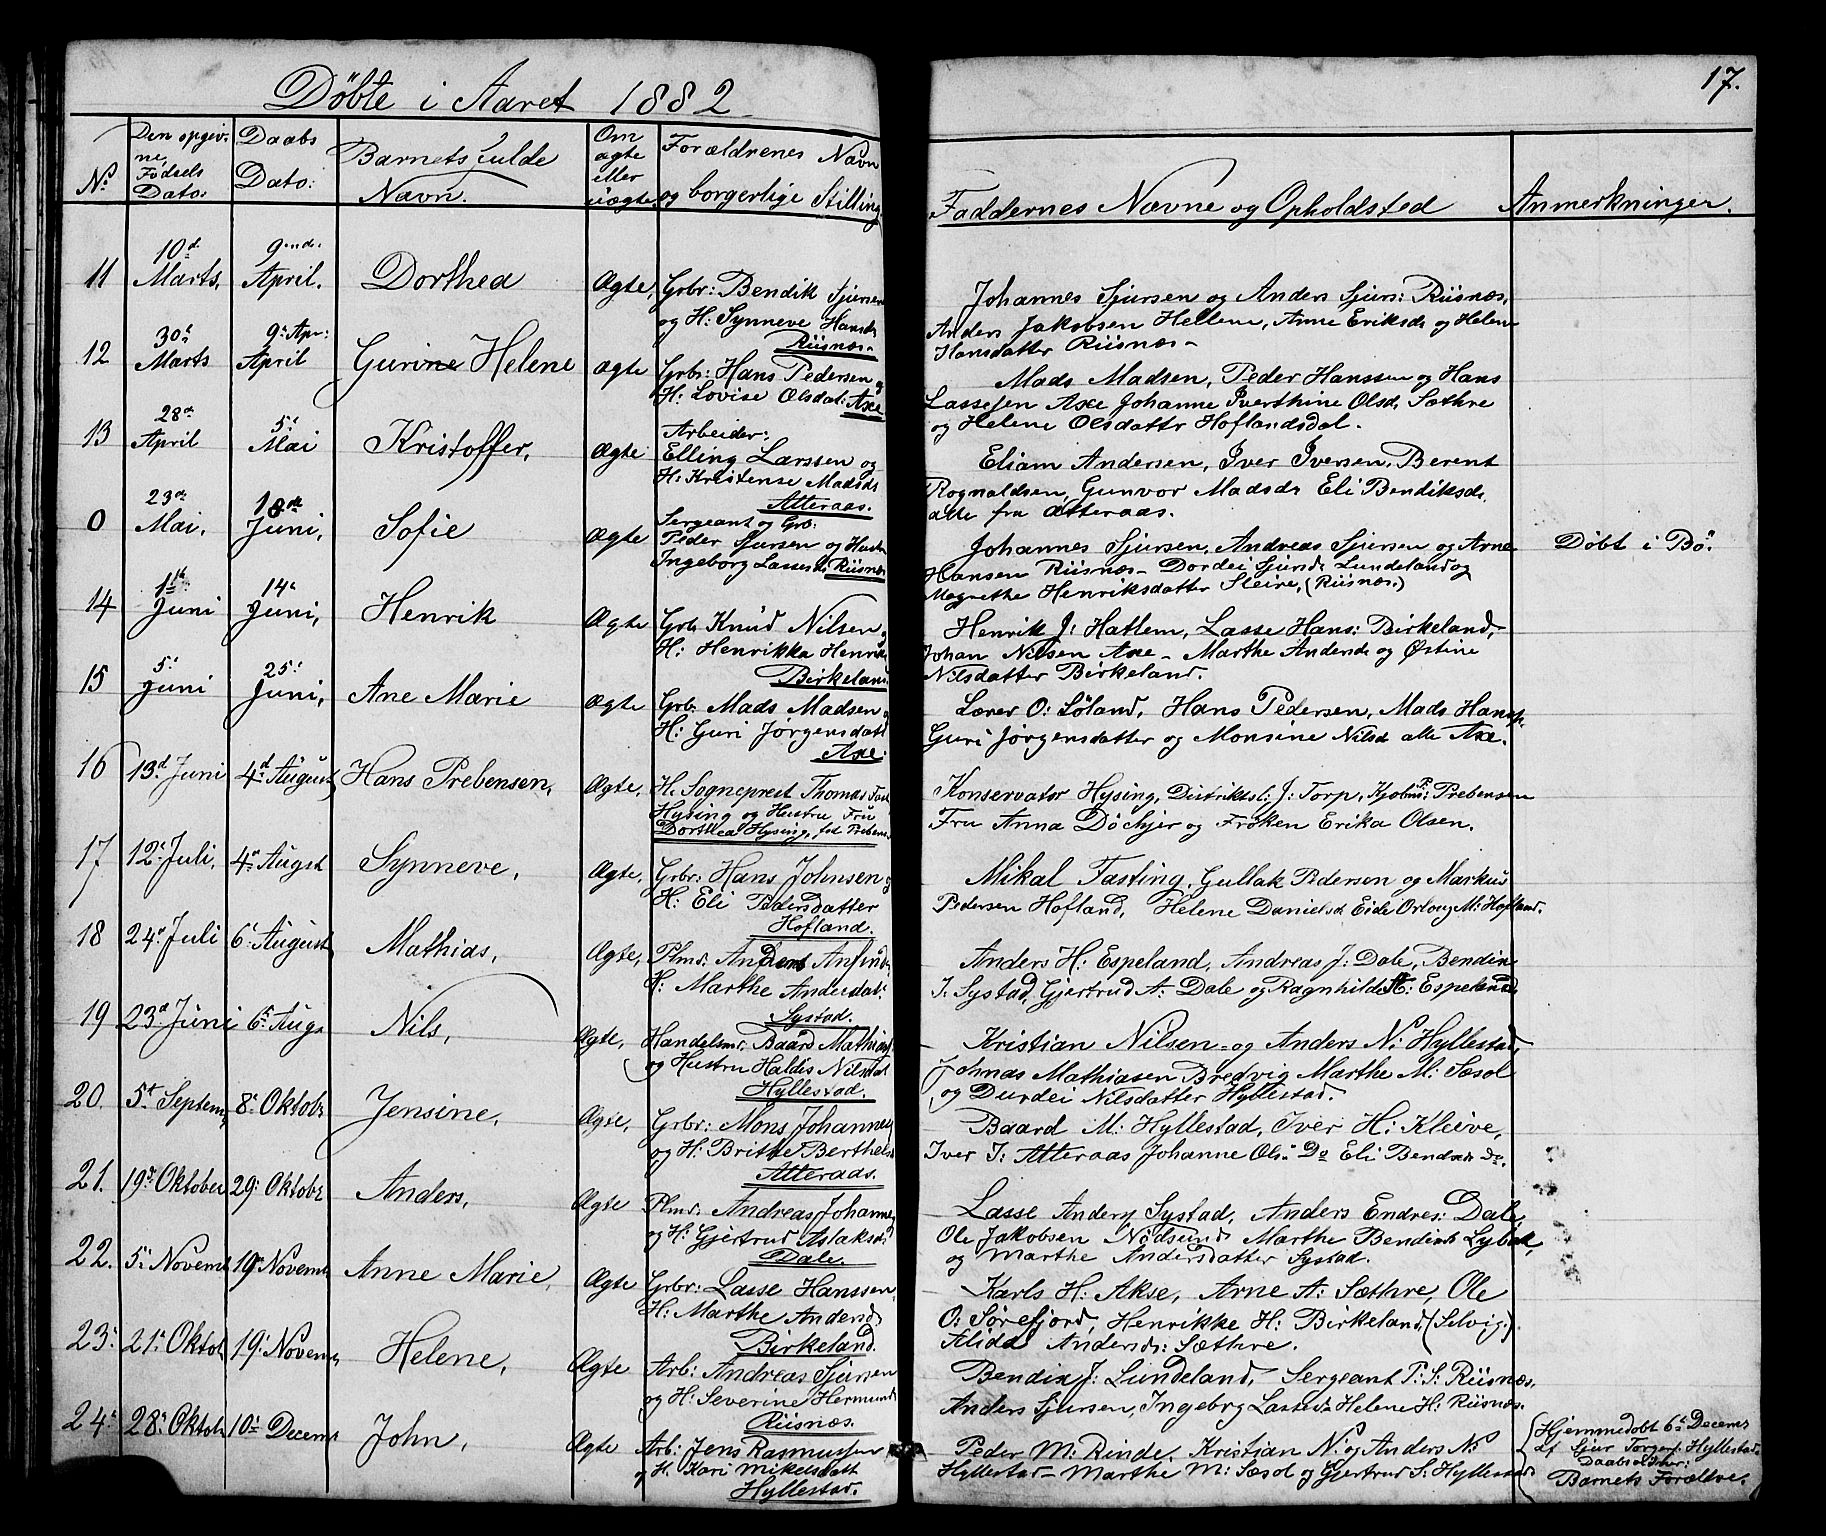 Døbte i Aaret 1882
17.
No
Den opgiv-
ne
Fødsels
Dato:
Daabs
Dato:
Barnets fulde
Navn.
Om
ægte
eller
uægte.
Forældrenes Navn
og borgerlige Stilling
Faddernes Navne og Opholdsted
Anmerkninger.
11
10d
Marts,
9nde
April.
Dorthea
Ægte,
Grbr: Bendik Sjursen
og H: Synneve Hansdr
Riisnæs.-
Johannes Sjursen og Anders Sjurs: Riisnæs,
Anders Jakobsen Hellem, Anne Eriksdr og Helene
Hansdatter Riisnæs-
12
30t
Marts
9: Apr:
April
Gurine Helene
ægte
Grbr: Hans Pedersen og
H: Lovise Olsdat: Axe
Mads Madsen, Peder Hanssen og Hans
Lassesen Axe Johanne Iverthine Olsd. Sæthre
og Helene Olsdattr Hoflandsdal.
13
28de
April
5t
Mai
Kristoffer,
Ægte
Arbeider:
Elling Larssen og
H: Kristense Madsdr
Atteraas.
Eliam Andersen, Iver Iversen, Berent
Rognaldsen, Gunvor Madsdr Eli Bendiksdr
alle fra Atteraas.
0
23de
Mai,
18de
Juni,
Sofie
Ægte
Sergeant og Grb:
Peder Sjursen og Hustr
Ingeborg Lassesdr Riisnæs
Johannes Sjursen, Andreas Sjursen og Arne
Hansen Riisnæs- Dordei Sjursdr Lundeland og
Magrethe Henriksdatter Sleire, (Riisnæs.)
Døbt i Bø.
14
1ste
Juni
14de
Juni,
Henrik
Ægte
Grbr Knud Nilsen og
H: Henrikka Henriks
Birkeland
Henrik J: Hatlem, Lasse Hans: Birkeland,
Johan Nilsen Axe - Marthe Andersdr og Østine
Nilsdatter Birkeland.
15
5:
Juni
25:
Juni,
Ane Marie
Ægte
Grbr. Mads Madsen og
H: Guri Jørgensdatt
Axe.
Lærer O: Løland, Hans Pedersen, Mads Hans,
Guri Jørgensdatter og Monsine Nilsd alle Axe.
16
13d Juni
4d August
Hans Prebensen,
Ægte,
H. Sogneprest Thomas Fast
Hysing og Hustru Fru
Dorthea Hysing, fød Prebens
Konservator Hysing, Distriktsl: J: Torp, Kjøbm: P: Prebensen
Fru Anna Døcher og Frøken Erika Olsen.
17
12: Juli,
4de Augst
Synneve,
Ægte,
Grbr: Hans Johnsen og
H: Eli Pedersdatter
Hofland.
Mikal Fasting, Gullak Pedersen og Markus
Pedersen Hofland, Helene Danielsd Eide Orloug M: Hofland.
18
24d Juli
6: August
Mathias,
Ægte,
Plmd: Anders Anfinds
H: Marthe Andersdat:
Systad.
Anders H: Espeland, Andreas J: Dale, Bendix
I: Systad, Gjertrud A: Dale og Ragnhilde H: Espeland
19
23d Juni
6: Aug
Nils,
Ægte,
Handelsm. Baard Mathias
og Hustru Haldis Nilsdat
Hyllestad.
Kristian Nilsen og Anders N: Hyllestad,
Johnas Mathiasen Bredvig Marthe M: Sæsol
og Durdei Nilsdatter Hyllestad.
20.
5t Septem
8: Oktobr
Jensine,
Ægte,
Grbr: Mons Johannes
og H: Brithe Berthels
Atteraas.
Baard M: Hyllestad, Iver H: Kleive,
Iver I: Atteraas Johanne Ols: Do Eli Bendsdr do.
21.
19d Oktober
29: Oktobr
Anders,
Ægte
Plmd: Andreas Johannes
og H: Gjertrud Aslaksdr
Dale.
Lasse Anders Systad, Anders Endres: Dale,
Ole Jakobsen Nødseund Marthe Bendixdr Lybæk,
og Marthe Andersdatter Systad.
22.
5: Novemb
19de Novemb
Anne Marie,
Ægte
Grbr: Lasse Hanssen,
H: Marthe Andersd
Birkeland.
Karls H: Akse, Arne A: Sæthre, Ole
O: Sørefjord, Henrikke H: Birkeland (Selvig.)
Alida Andersdr: Sæthre.
23:
21: Oktob
19: Novem
Helene,
Ægte
Arb: Andreas Sjursen
og H: Severine Hermund
Riisnæs.
Bendix J: Lundeland, Sergeant P: S: Riisnæs,
Anders Sjursen, Ingeborg Lassedr Helene H: Riisnæs.
24:
28: Oktob
10: Decemb
John,
Ægte
Arb: Jens Rasmussen
og H. Kari Mikelsdatt
Hyllestad.
Peder M: Rinde, Kristian N: og Anders N:
Hyllestad - Marthe M: Sæsol og Gjertrud S: Hyllestad
Hjemmedøbt 6t Decemb
af Sjur Torgers Hyllestad
Daabsvidner:
Barnets Forældre.